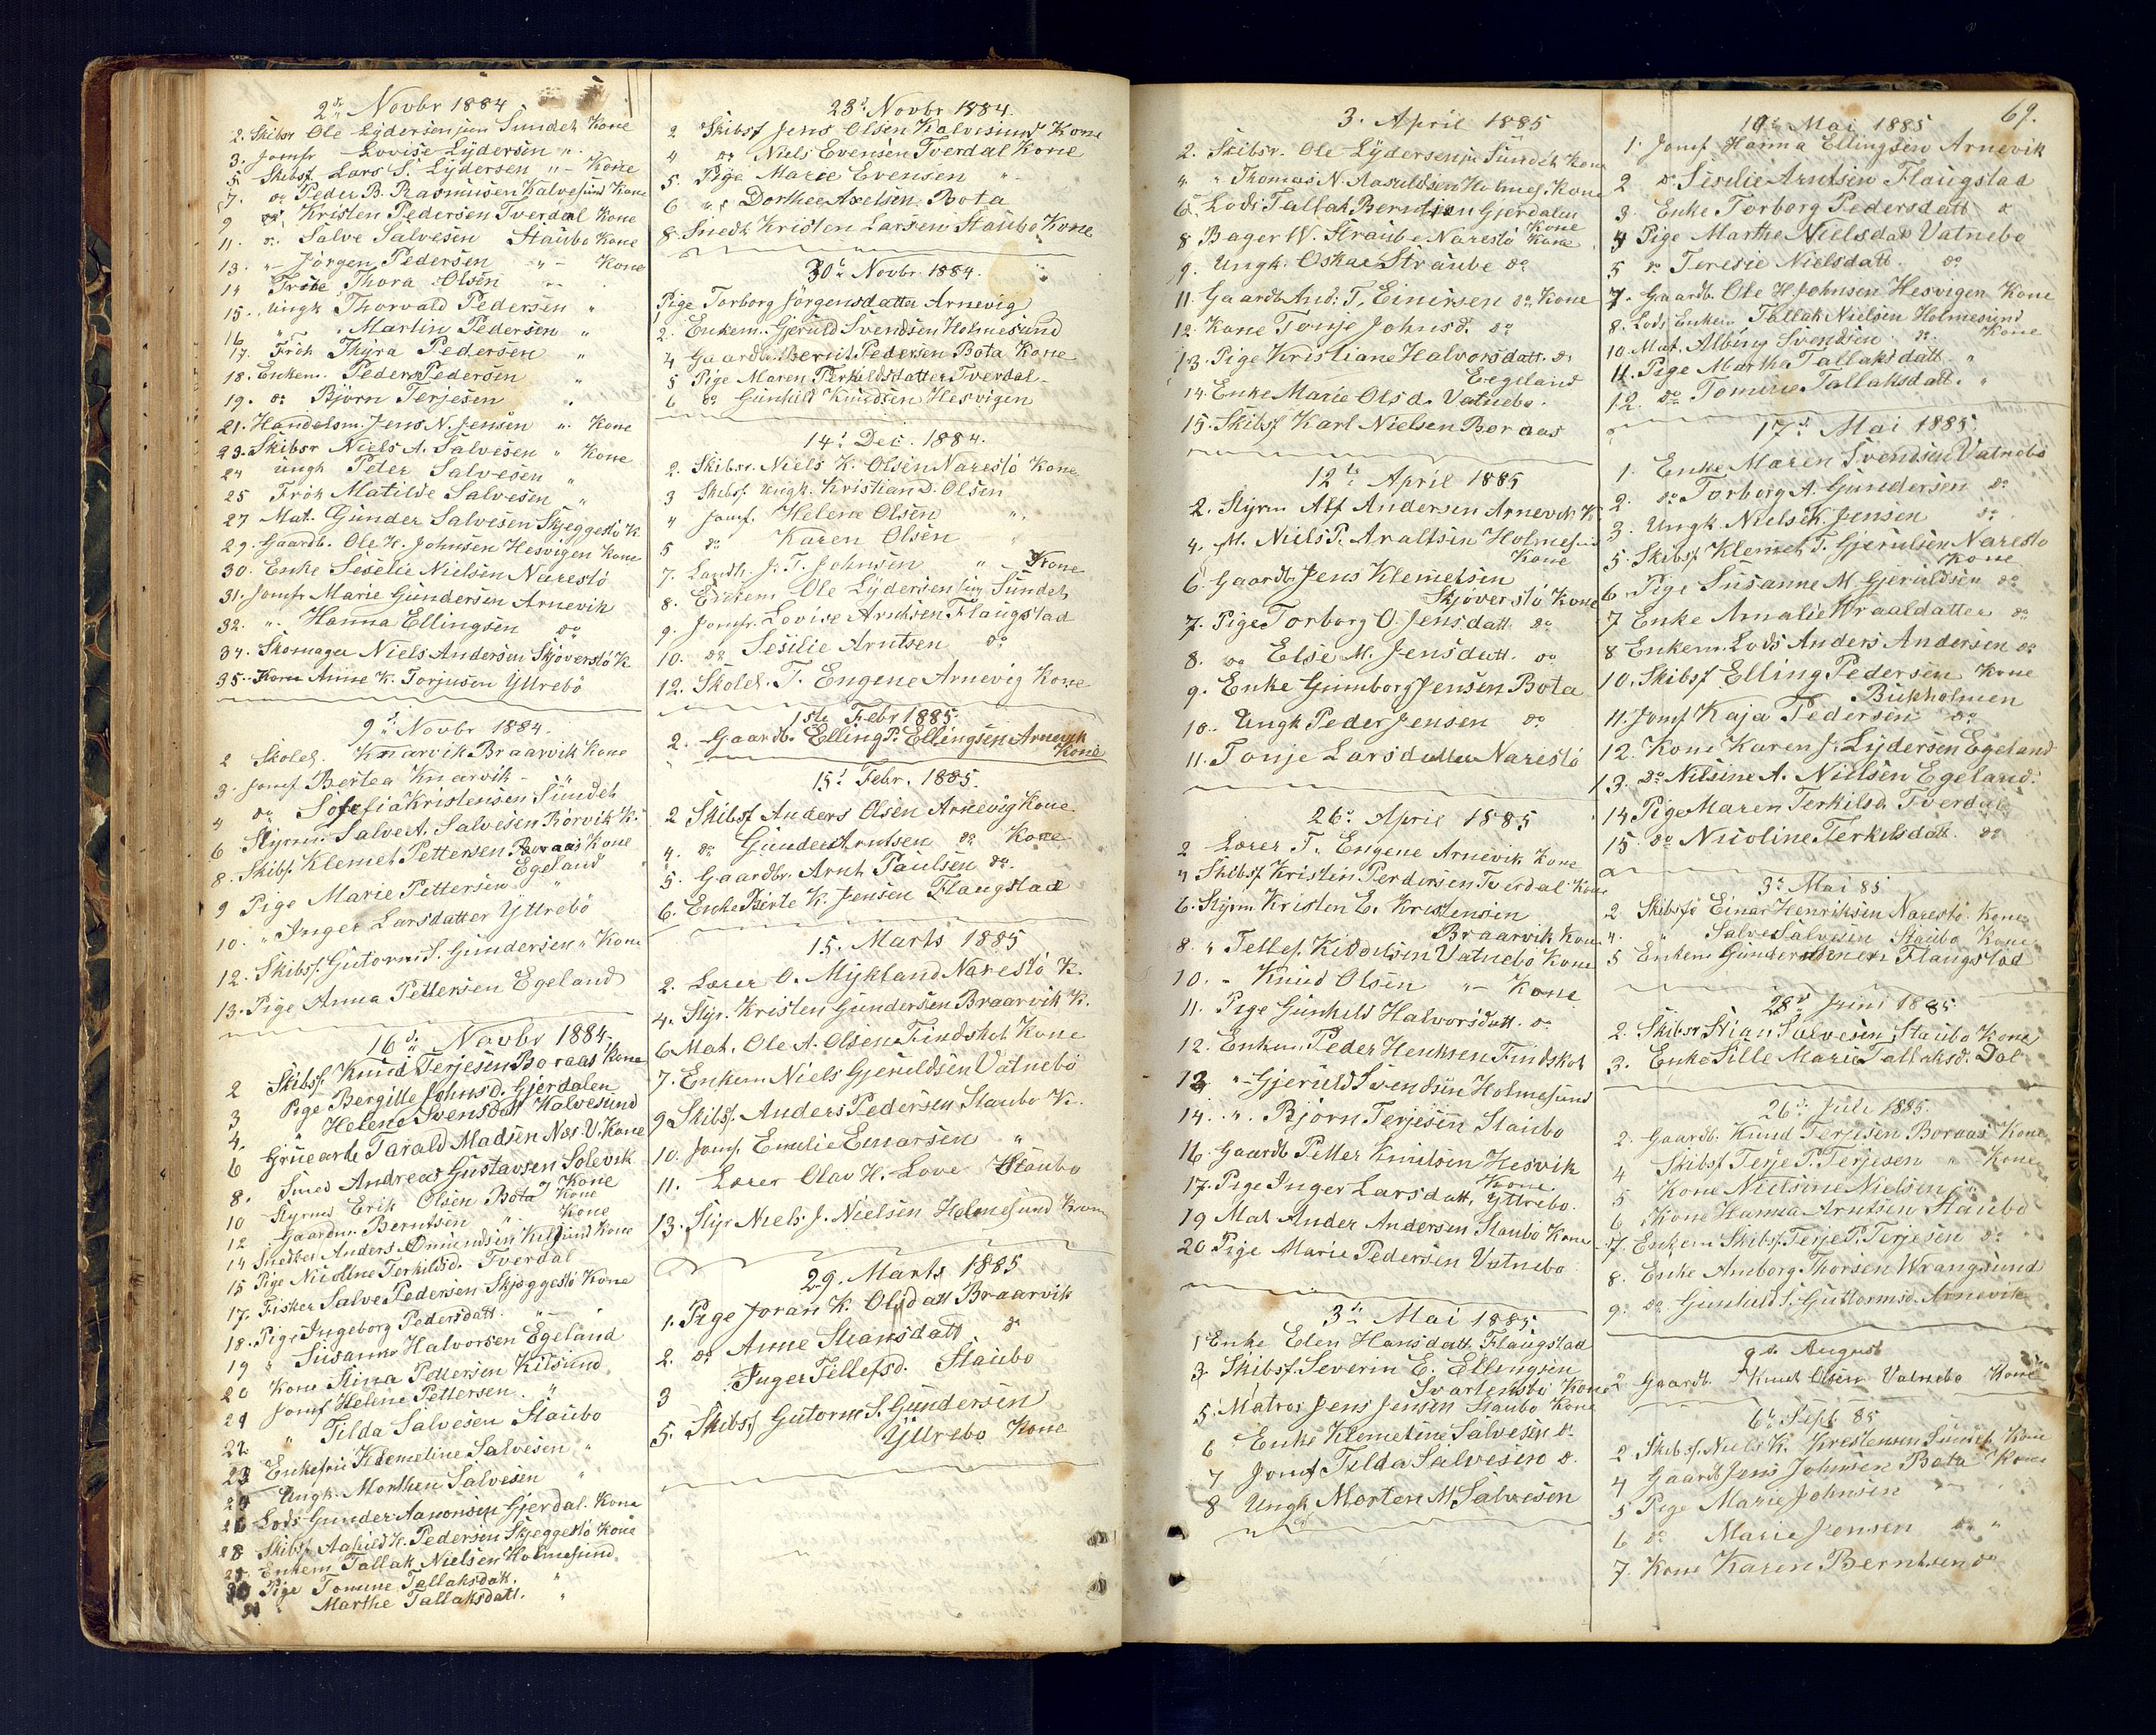 2 Novbr 1884
2. Skibsr Ole Lÿdersen jun Sundet Kone
3. Jomfr Lovise Lÿdersen "
5 Skibsf Lars S. Lÿdersen " - Kone
7. do Peder B. Rasmusen Kalvesund Kone
9 do Kristen Pedersen Tverdal Kone
11. do Salve Salvesen Staubo Kone
13. " Jörgen Pedersen " - Kone
14 Fröke Thora Olsen "
15. Ungk Thorvald Pedersen "
16 " Martin Pedersen "
17. Fröh Thÿra Pedersen "
18. Enkem. Peder Pedersen "
19. do Björn Terjesen "
21. Handelsm. Jens N. Jensen " Kone
23. Skibsr Niels A. Salvesen " Kone
24 Ungk Peter Salvesen "
25 Fröh Matilde Salvesen "
27 Mat. Gunder Salvesen Skjeggestö K.
29. Gaardb. Ole H. Johnsen Hesvigen Kone
30. Enke Seselie Nielsen Narestö
31. Jomfr Marie Gundersen Arnevik
32. " Hanna Ellingsen do
34. Skomager Niels Andersen Skjöverstö K
35. Kone Anne K. Torjusen Yttrebö
9 Novbr 1884.
2 Skolel. Knarvik Braarvik Kone
3. Jomf Bertea Knarvik
4 do Sofefia Kristensen Sundet
6 Styrm. Salve A. Salvesen Rörvik K.
8. Skibsf. Klemet Pettersen Boraas Kone
Egeland
9 Pige Marie Pettersen "
10. " Inger Larsdatter Yttrebö
12. Skibsf. Gutorm S. Gundersen " Kone
13. Pige Anna Pettersen Egeland
16 Novbr 1884.
2 Skibsf. Knud Terjesen Boraas Kone
3 Pige Bergitte Johnsd. Gjerdalen
4. " Helene Svensdatt Kalvesund
6 Gruearb Tarald Madsen Nes V. Kone
8. Smed Andreas Gustavsen Solevik
Kone
10 Styrmd Erik Olsen Bota Kone
12 Gaardm. Berntsen " Kone
14 Snedker Anders Omundsen Kilsund Kone
15 Pige Nicoline Terkildsd. Tverdal
17. Fisker Salve Pedersen Skjeggestö Kone
18. Pige Ingeborg Pedersdatt. "
19 " Susanne Halvorsen Egeland
20 Kone Stina Pettersen Kilsund
21 Jomf Helene Pettersen. "
22. " Tilda Salvesen Staubo
23 Enkefru Klemeline Salvesen "
24 Ungk. Morthen Salvesen "
26 Lods Gunder Aanonsen Gjerdal. Kone
28 Skibsf. Aasuld K. Pedersen Skjeggestö Kone
29. Enkem Tallak Nielsen Holmesund.
30 Pige Tomine Tallaksdatt. "
31 " Marthe Tallaksdatt. "
23 Novbr 1884.
2 Skibsf Jens Olsen Kalvesund Kone
4 do Niels Evensen Tverdal Kone
5. Pige Marie Evensen "
6 " Dorthea Axelsen Bota
8. Snedk Kristen Larsen Staubo Kone
30 Novbr 1884.
1 Pige Torborg Jörgensdatter Arnevig
2. Enkem. Gjeruld Svendsen Holmesund
4 Gaardb. Berrit Pedersen Bota Kone
5 Pige Maren Terkeldsdatter Tverdal
6 do Gunhild Knudsen Hesvigen
14 Dec. 1884.
2. Skibsr. Niels K. Olsen Narestö Kone
3 Skibsf. Ungk. Kristian D. Olsen
4 Jomf. Helene Olsen "
5 do Karen Olsen "
7. Landh. J. T. Johnsen " Kone
8. Enkem Ole Lÿdersen Sundet
9. Jomfr. Lovise Arntsen Flaugstad
10. do Sesilie Arntsen do
12. Skolel. T. Engene Arnevig Kone
1ste Febr 1885.
2. Gaardb. Elling P. Ellingsen Arnevik
Kone
15 Febr. 1885.
2 Skibsf Anders Olsen Arnevig Kone
4. do Gunder Arntsen do Kone
5. Gaardbr. Arnt Paulsen do.
6. Enke Berte K. Jensen Flaugstad
15. Marts 1885
2. Lærer O. Mÿkland Narestö K.
4. Styr. Kristen Gundersen Braarvik K.
6 Mat. Ole A. Olsen Findskot Kone
7. Enkem Niels Gjeruldsen Vatnebö
9 Skibsf. Anders Pedersen Staubo K.
10. Jomf. Emelie Einarsen "
11. Lærer Olav H. Love Staubo
13. Styr Niels J. Nielsen Holmesund Kone
29. Marts 1885
1. Pige Joran K. Olsdatt Braarvik
2. do Anne Steansdatt do
3 Inger Tellefsd. Staubo
5. Skibsf Gutorm S. Gundersen
Yttrebo Kone
69.
3. April 1885
2. Skibsr. Ole Lÿdersen jn Sundet Kone
4. " Thomas N. Aasuldsen Holmes. Kone
6. Lods Tallak Berntsen Gjerdalen
Kone
8 Bager W. Straube Narestö Kone
9. Ungk. Oskar Straube do
11. Gaardb And: T. Einersen do. Kone
12. Kone Tonje Johnsd. do
13. Pige Kristiane Halvorsdatt. do
Eegeland
14. Enke Marie Olsd. Vatnebo.
15. Skibsf Karl Nielsen Boraas
12 April 1885
2. Styrm Alf Andersen Arnevik K.
4. M. Niels P. Araltsen Holmesund
Kone
6. Gaardb. Jens Klemetsen
Skjöverstö Kone
7. Pige Torborg O. Jensdatt. do
8. do Else M. Jensdatt. do
9. Enke Gunnborg Jensen Bota
10. Ungk Peder Jensen do
11. Tonje Larsdatter Narestö
26. April 1885
2 Lærer T. Engene Arnevik Kone
4 Skibsf Kristen Perdersen Tverdal Kone
6. Styrm. Kristen E. Kristensen
Braarvik Kone
8. " Tellef. Kiddelsen Vatnebo Kone
10. " Knud Olsen " Kone
11. Pige Gunhild Halvorsdatt. do
12. Enkem. Peder Henksen Findskot
13 " Gjeruld Svendsen Holmesund
14. " Björn Terjesen Staubo
16. Gaardb Petter Knutsen Hesvik
Kone
17. Pige Inger Larsdatt, Yttrebo.
19 Mat Ander Andersen Staubo Kone
20 Pige Marie Pedersen Vatnebo
3 Mai 1885.
1 Enke Elen Hansdatt. Flaugstad
3 Skibsf. Severin E. Ellingsen
Svartensbö Kone
5. Matros Jens Jensen Staubo Kone
6 Enke Klemetine Salvesen d.
7 Jomf Tilda Salvesen d.
8 Ungk Morten M Salvesen
10 Mai 1885
1. Jomf Hanna Ellingsen Arnevik
2 do Seselie Arntsen Flaugstad
3. Enke Torborg Pedersdatt do
4 Pige Marthe Nielsdatt Vatnebo
5 do Teresie Nielsdatt. do
7. Gaardb. Ole H. Johnsen Hesvigen Kone
8. Lods Enkem Tallak Nielsen Holmesund
10. Mat. Albing Svendsen do. Kone
11. Pige Marthe Tallaksdatt. "
12. do Tomine Tallaksdatt. "
17 Mai 1885.
1. Enke Maren Svendsen Vatnebö
2. do Torborg A. Gundersen do
3. Ungk Niels K. Jensen do
5. Skibsf Klemet T. Gjerulsen Narestö
Kone
6. Pige Susanne M. Gjeruldsen do
7 Enke Amalie Wraaldatter do
8 Enkem. Lods Anders Andersen do
10. Skibsf Elling Pedersen Kone
Bukholmen
11. Jomf Kaja Pedersen do
12. Kone Karen J. Lÿdersen Egeland
13. do Nilsine A. Nielsen Egeland.
14 Pige Maren Terkilsd. Tverdal
15 do Nicoline Terkilsdatt. do
3 Mai 85
2 Skibsf Einar Henriksen Narestö Kone
4. " Salve Salvesen Staubo Kone
5 Enkem Gunder Flaugstad
28 Juni 1885
2. Skibsr Stian Salvesen Staubo Kone
3. Enke Sille Marie Tallaksd. Dal
26 Juli 1885.
2. Gaardb. Knud Terjesen Boraas Kone
4 Skibsf Terje P. Terjesen " Kone
5 Kone Nielsine Nielsen
6 Kone Hanna Arntsen Staubo
7. Enkem Skibsf. Terje P. Terjesen do
8. Enke Amborg Thorsen Wrangsund
9. do Gunhild S. Guttormsd. Arnevik
9 August
2 Gaardb. Knut Olsen Vatnebo Kone
6 Sept 85
2 Skibsf. Niels K. Krestensen Sundet Kone
4 Gaardb Jens Johnsen Bota Kone
5 Pige Marie Johnsen "
6 do Marie Jensen do "
7. Kone Karen Berntsen do